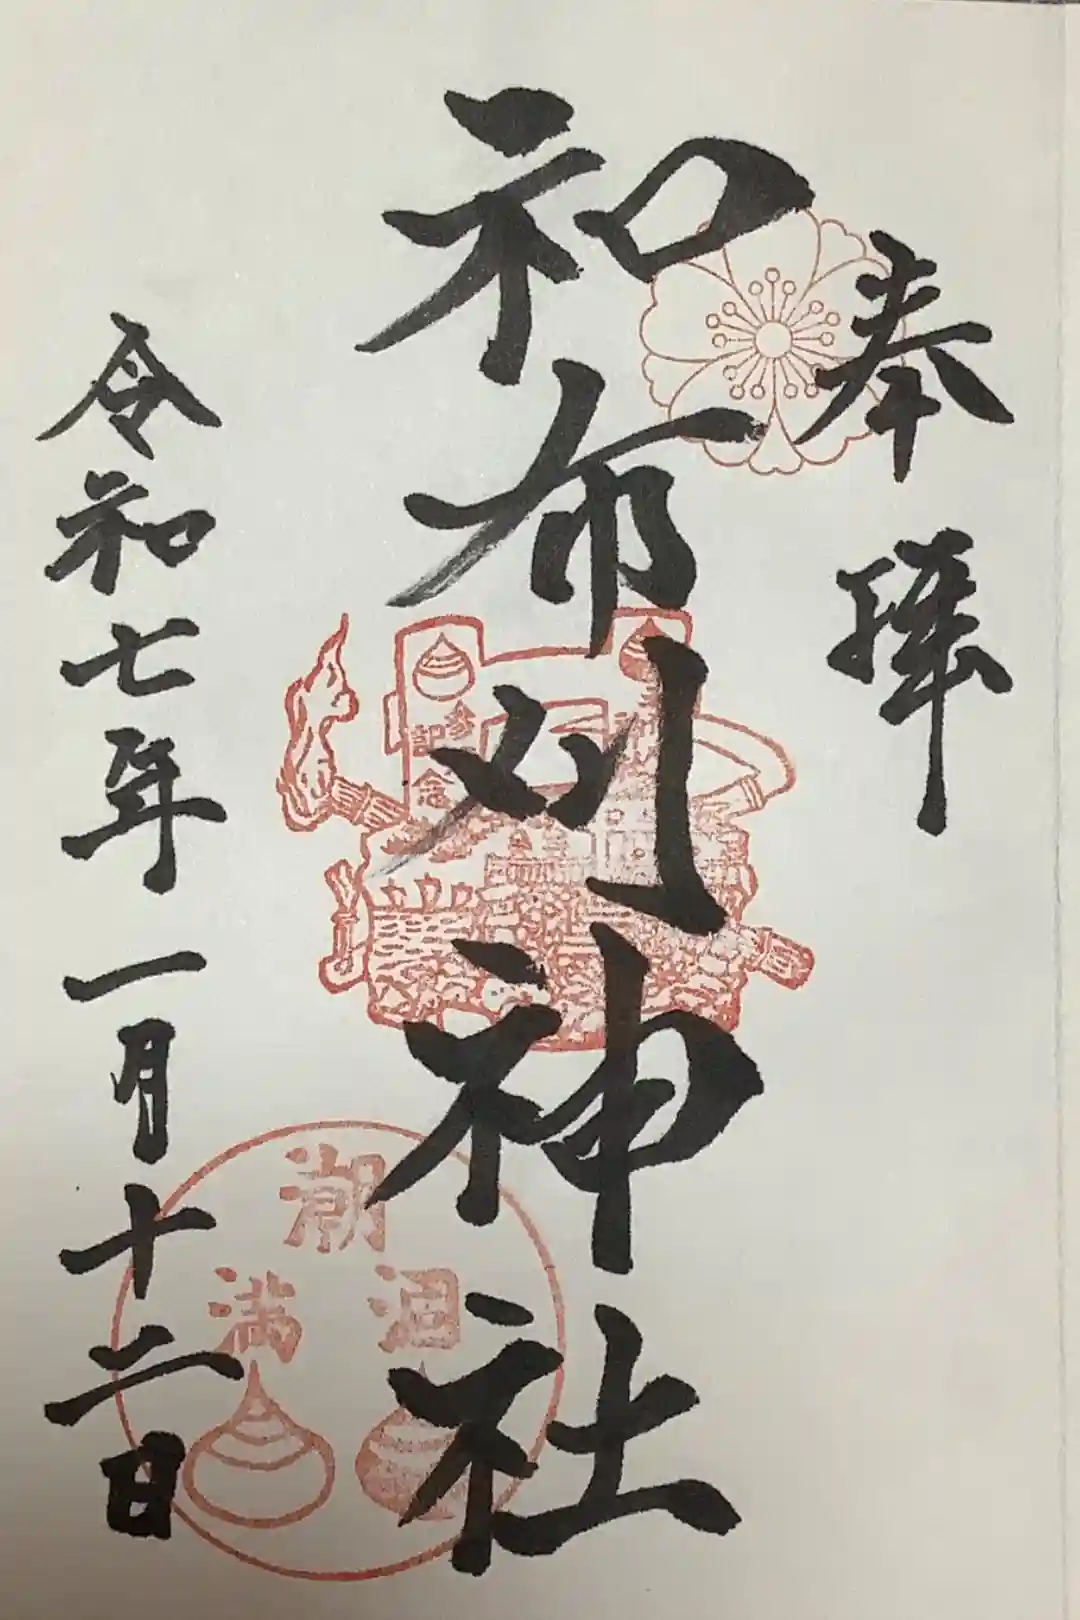 奉拝
和布刈神社
令和七年一月十二日
参
記念
潮
満 涸